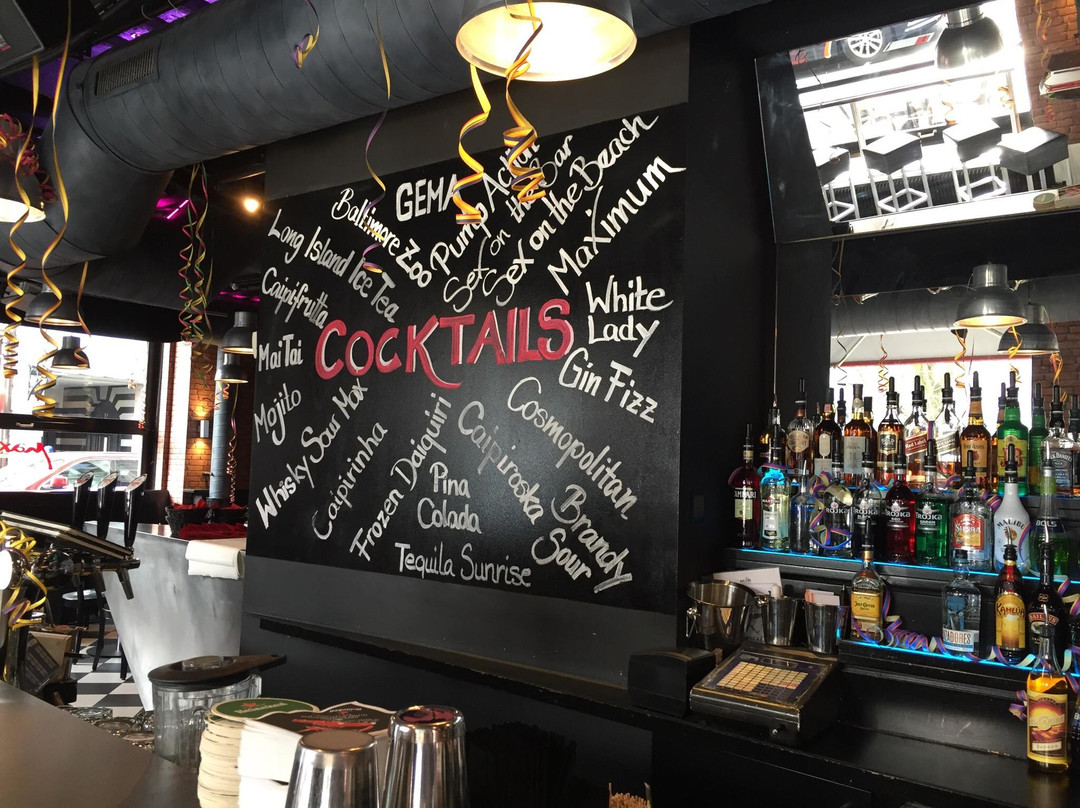 GEMA
Baltimore Zoo
Pump Action
Sex on
the Bar
Sex on the Beach
Maximum
Long Island Ice Tea
Caipifrutta
COCKTAILS
White
Lady
Mai Tai
Gin Fizz
Mojito
Whisky Sour Max
Caipirinha
Frozen Daiquiri
Pina
Colada
Caipiroska
Cosmopolitan
Brandy
Sour
Tequila Sunrise
CAMPARI
TROJKA
TROJKA
TROJKA
SIERRA
MALIBU
BOLS
JACK DANIEL'S
KAHLÚA
BAILEYS